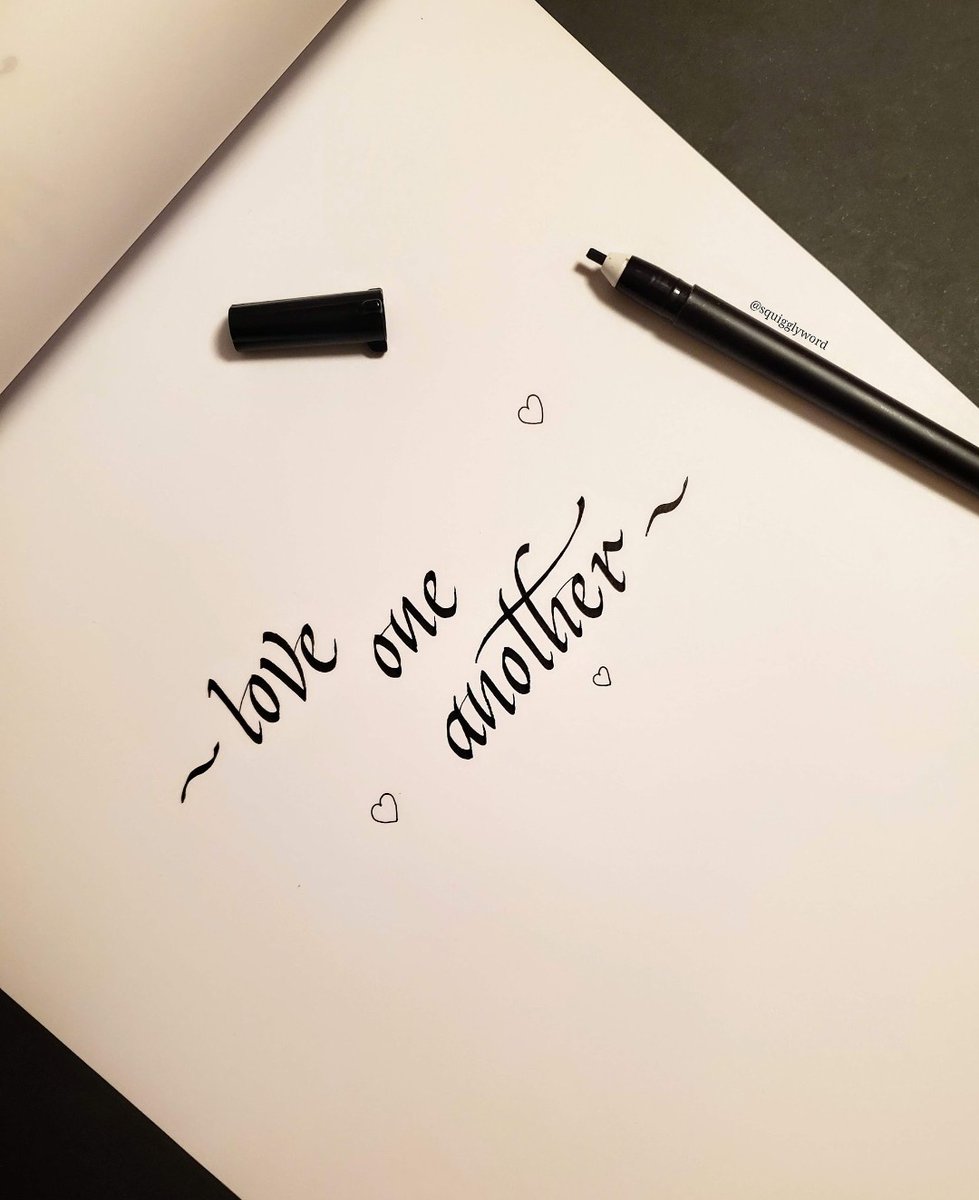 ~ love one
another ~
@squigglyword